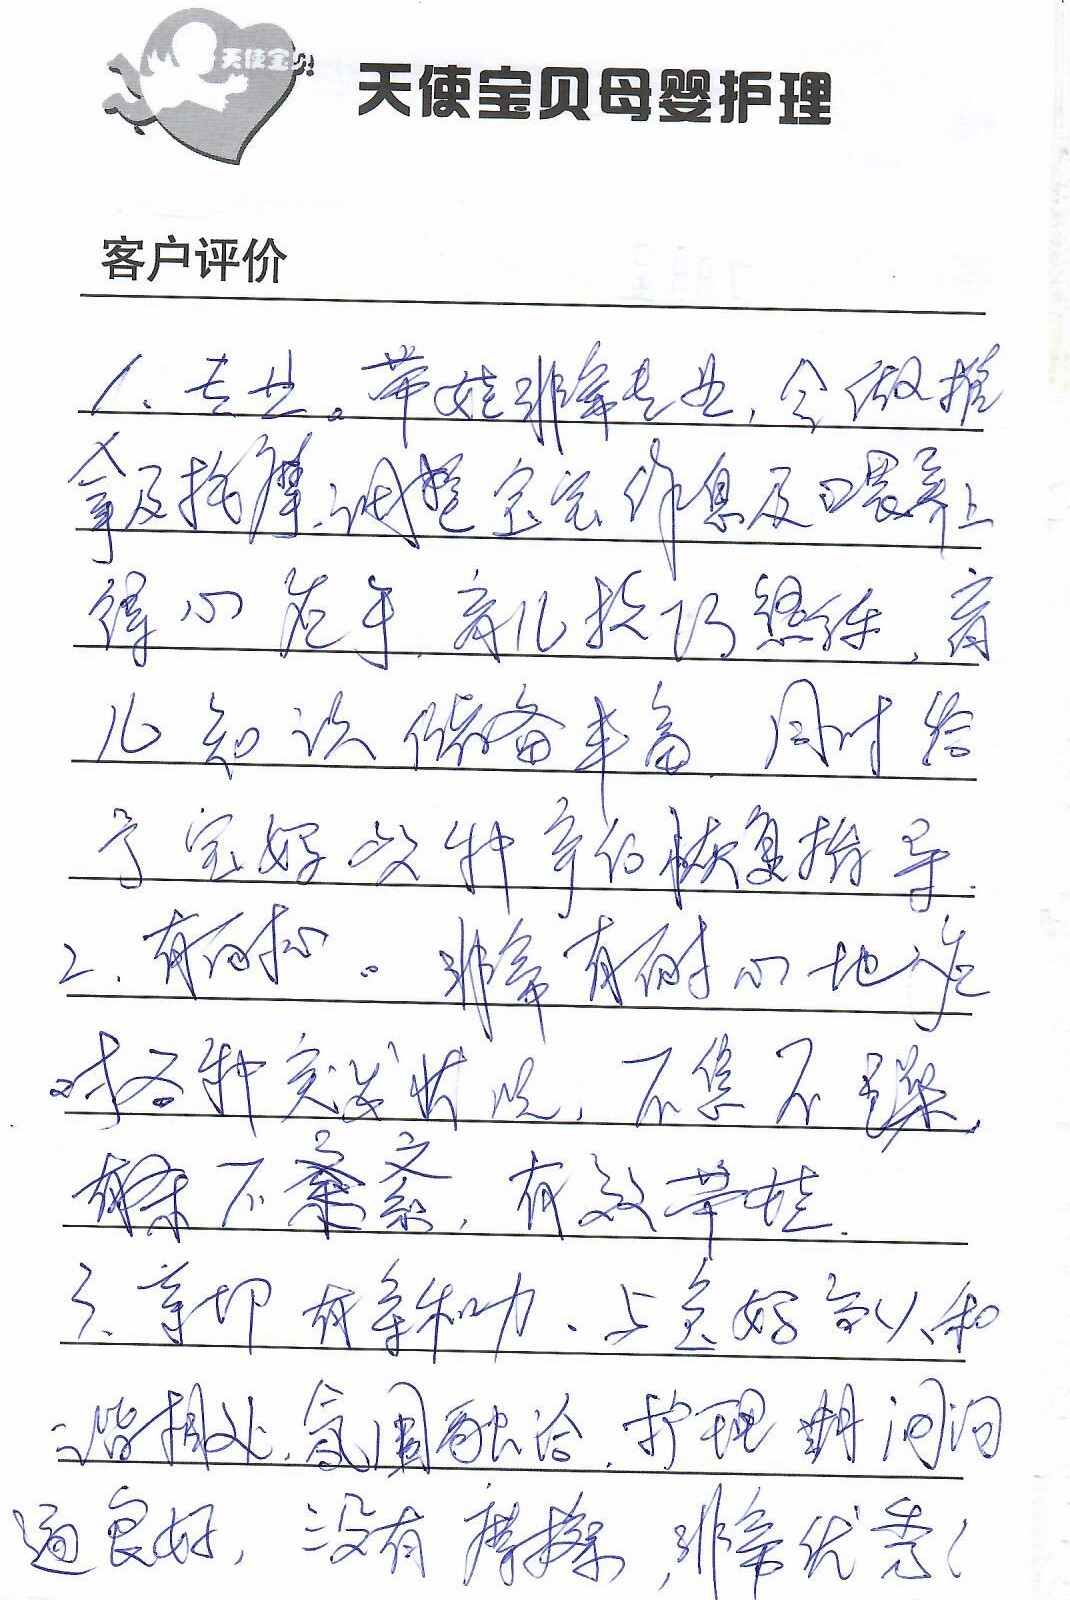 天使宝贝
天使宝贝母婴护理
客户评价
1、专业。带娃非常专业，会做推
拿及按摩、调整宝宝作息及喂养上
得心应手，育儿技巧熟练，育
儿知识储备丰富，同时给
予宝妈多种产后恢复指导。
2、有耐心。非常有耐心地应
对各种突发状况，不急不躁，
有条不紊，有效带娃。
3、亲切有亲和力、与宝妈家人和
谐相处，氛围融洽，护理期间沟
通良好，没有摩擦，非常优秀！